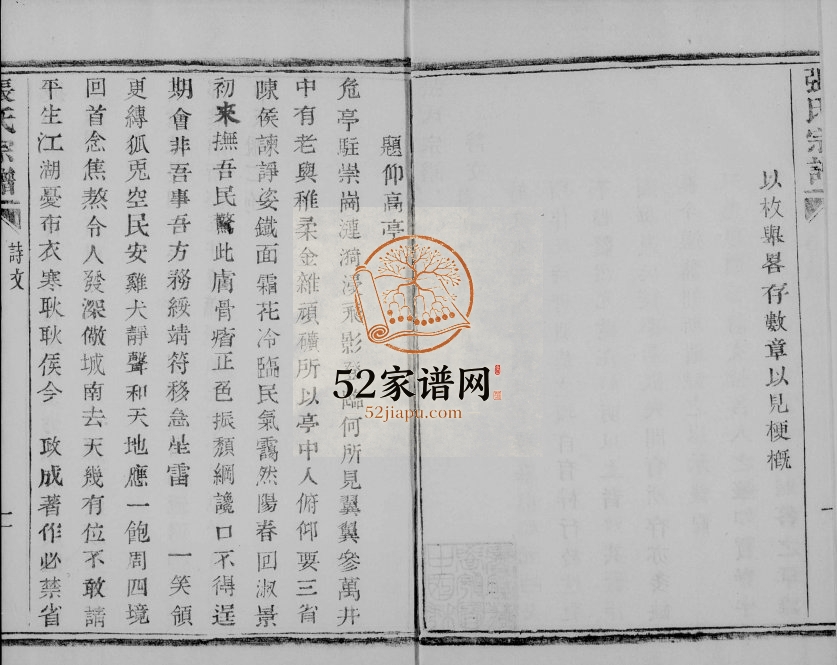 張氏宗譜
以枚舉畧存數章以見梗概
一
題仰高亭
危亭駐崇崗漣漪浸飛影臨何所見翼翼參萬井
中有老與稚柔金雜頑礦所以亭中人俯仰要三省
陳侯諫諍姿鐵面霜花冷臨民氣靄然陽春回淑景
初來撫吾民驚此膚骨瘠正色振頹綱讒口不得逞
期會非吾事吾方務綏靖符移急坐雷 一笑領
更縳狐兎空民安雞犬靜聲和天地應一飽周四境
回首念焦熬令人發深儆城南去天幾有位不敢請
平生江湖憂布衣寒耿耿侯今 政成著作必禁省
張氏宗譜
詩文
52家谱网
52jiapu.com